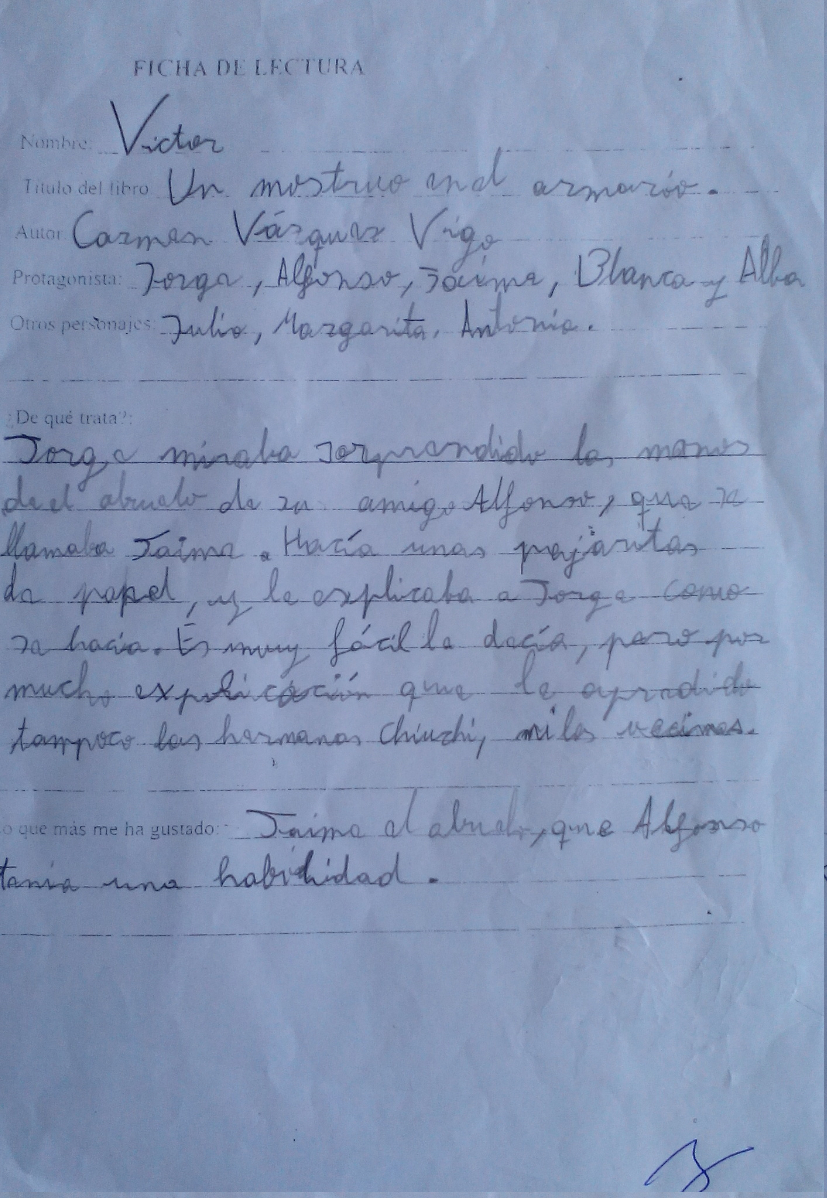 FICHA DE LECTURA
Nombre: Victor
Título del libro Un mostruo end armario.
Autor Carmen Vázquez Vigo
Protagonista: Jorge, Alfonso, Jaime, Blanca y Alba
Otros personajes: Julio, Margarita, Antonia.
¿De qué trata?:
Jorge miraba sorprendido las manos
de el abuelo de su amigo Alfonso, que se
llamaba Jaime. Hacía unas pajaritas
de papel, y le explicaba a Jorge como
se hacia. Es muy fácil le decía, pero por
mucho que le aprendido
tampoco las hermanas Chiuchi, ni los vecinos.
o que más me ha gustado: Jaime el abuelo, que Alfonso
tenia una habilidad.